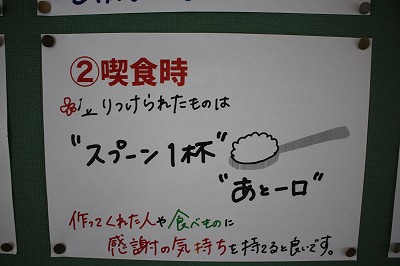 ②喫食時
もりつけられたものは
"スプーン1杯"
"あと一口"
作ってくれた人や食べものに
感謝の気持ちを持てると良いです。